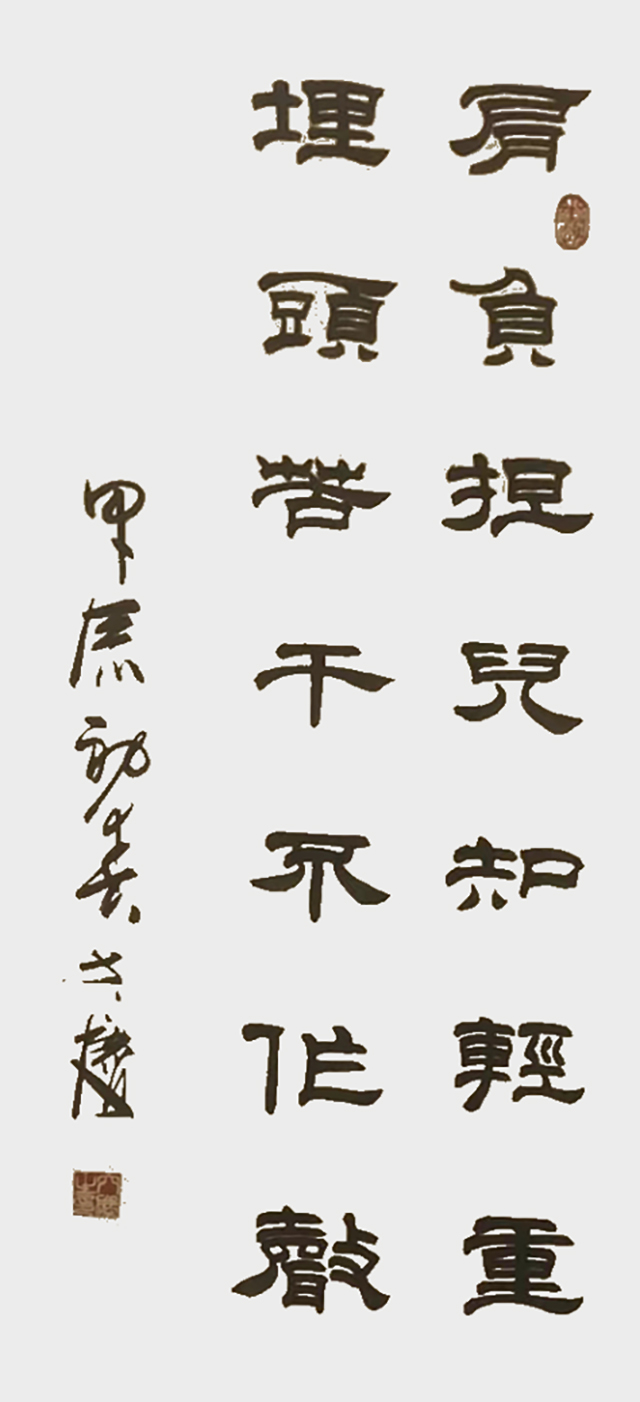 肩負担兒知輕重
埋頭苦干不作聲
甲辰初春